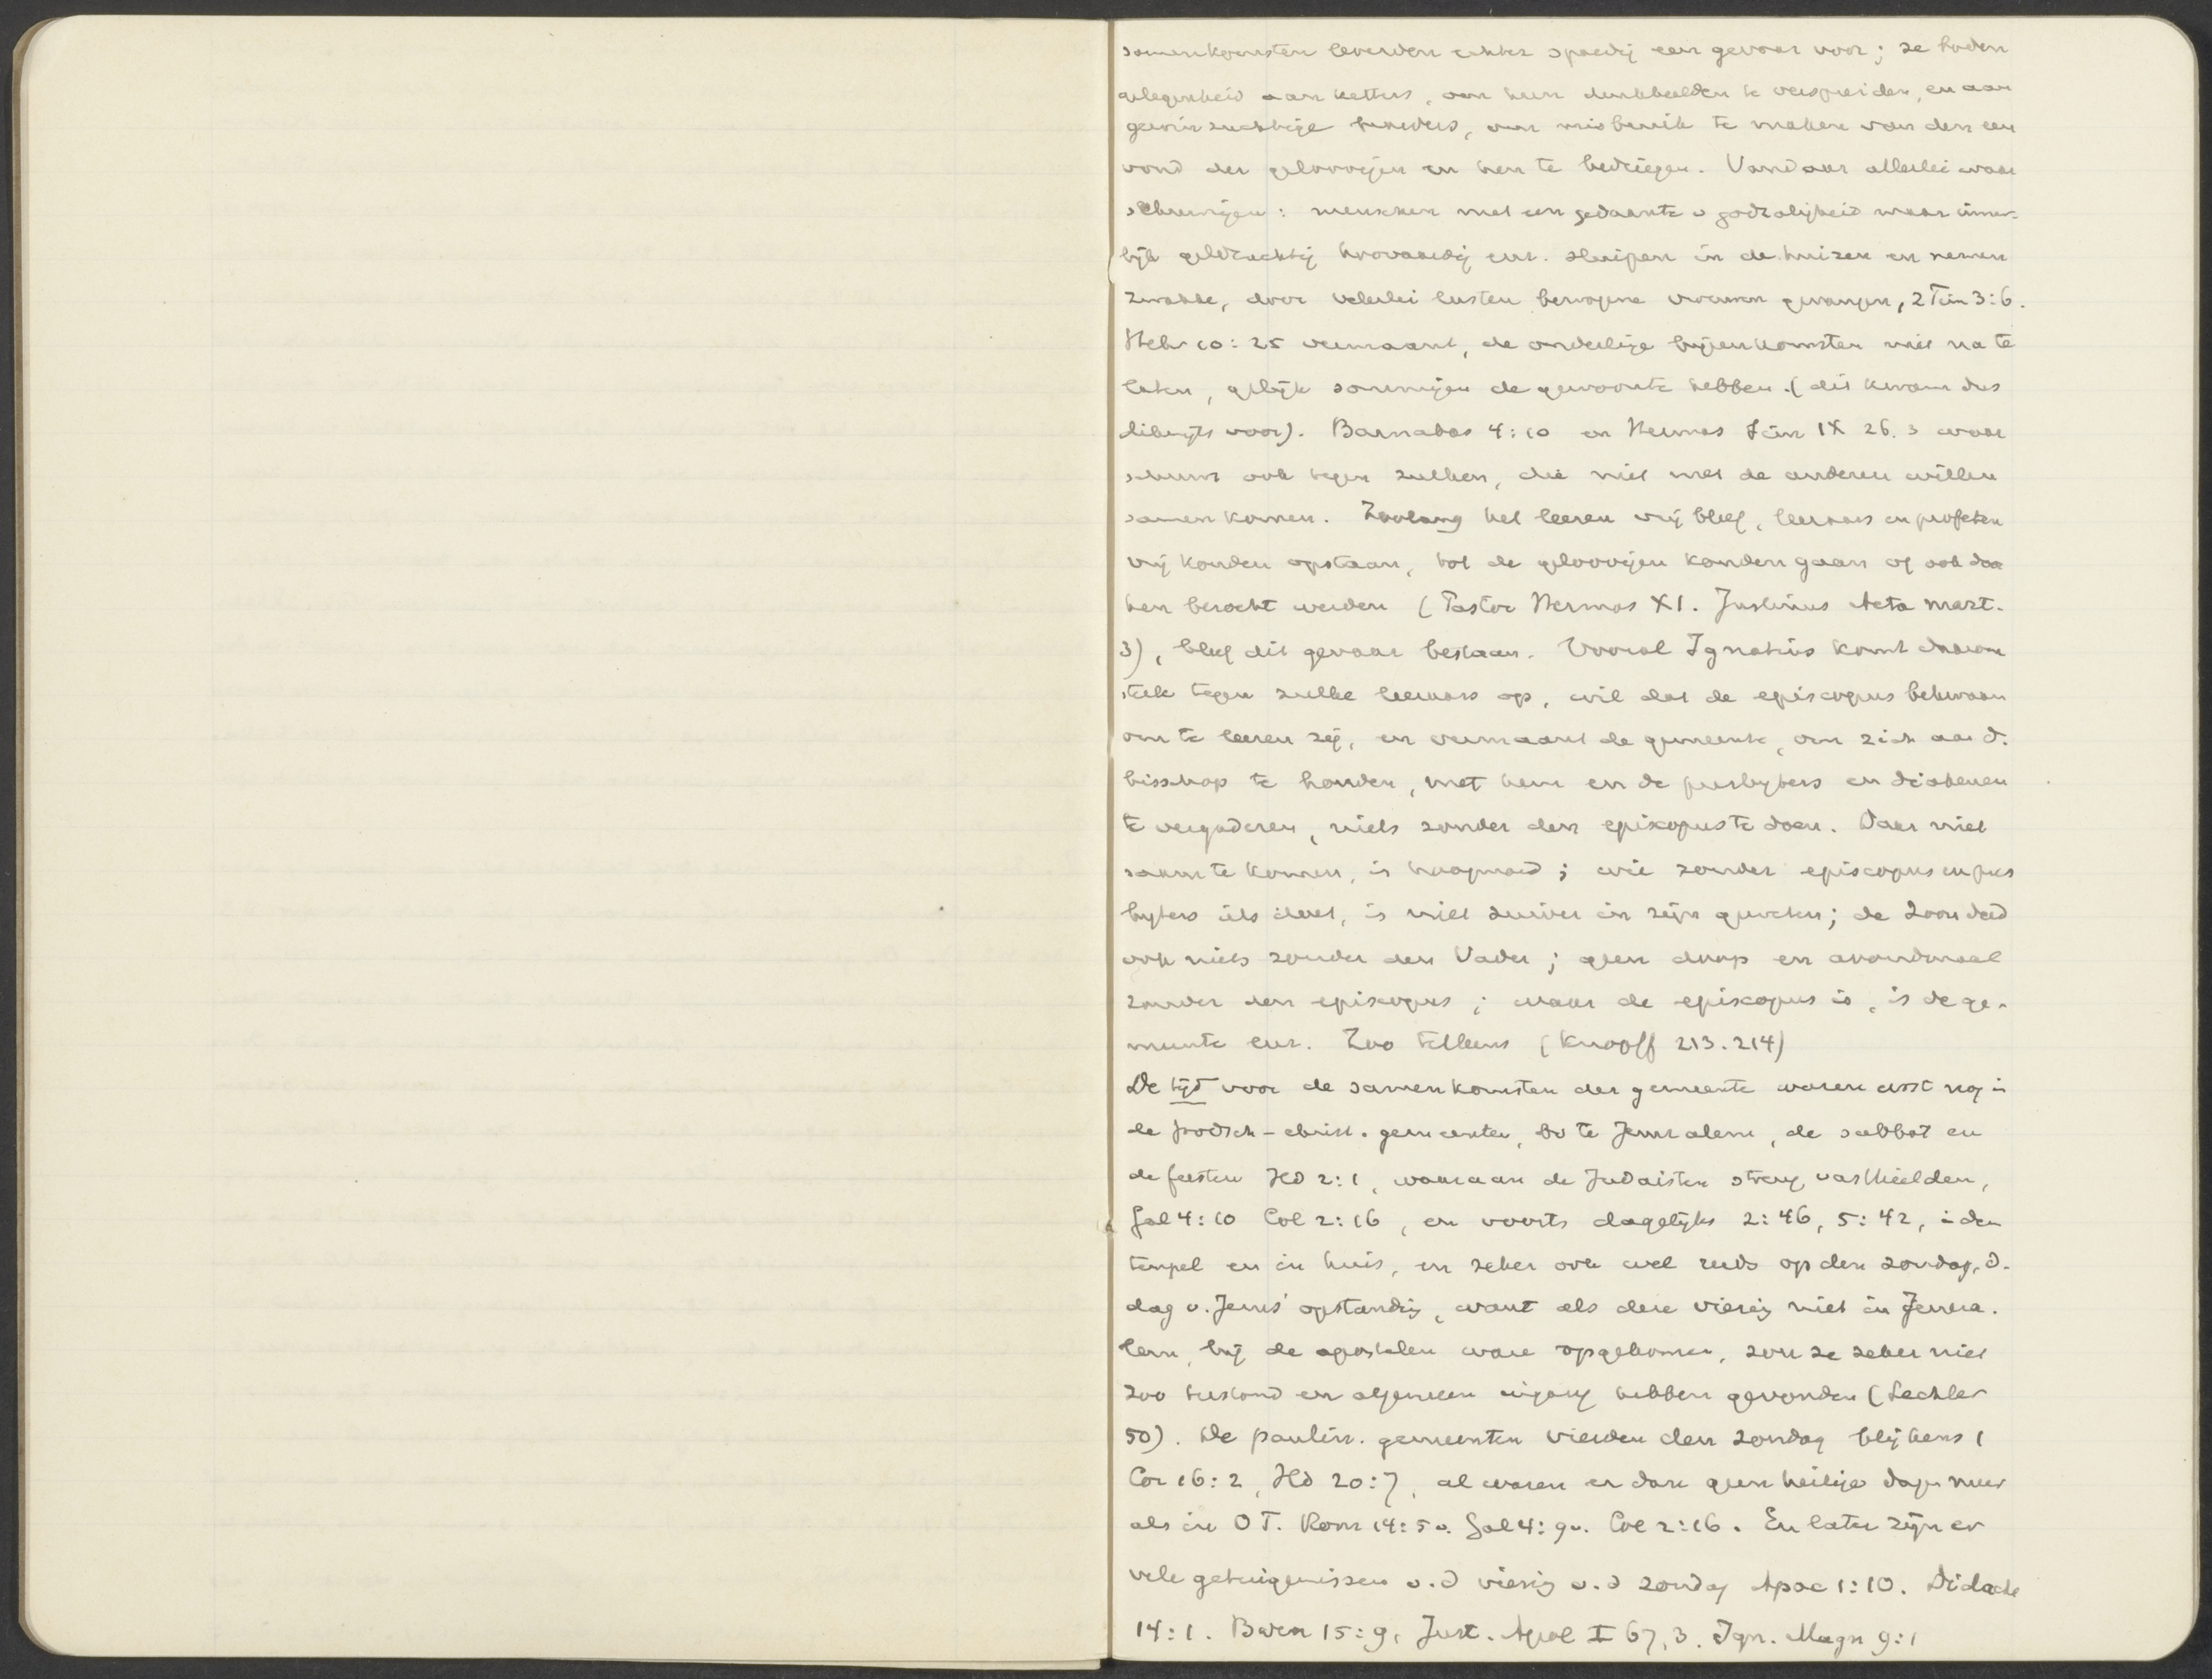 samenkomsten leverden echter spoedig een gevaar voor; ze boden
gelegenheid aan ketters, om hun denkbeelden te verspreiden, en aan
gewinzuchtige leeraars, om misbruik te maken van den een
voud der geloovigen en hen te bedriegen. Vandaar allerlei waar
schuwingen: menschen met een gedaante v godzaligheid maar inner-
lijk geldzuchtig hoovaardig enz. sluipen in de huizen en nemen
zwakke, door velerlei lusten bewogene vrouwen gevangen, 2 Tim 3:6.
Hebr 10:25 vermaant, de onderlinge bijeenkomsten niet na te
laten, gelijk sommigen de gewoonte hebben. (dit kwam dus
dikwijls voor). Barnabas 4:10 en Hermas Sim IX 26.3 waar
schuwt ook tegen zulken, die niet met de anderen willen
samenkomen. Zoolang het leeren vrij bleef, leeraars en profeten
vrij konden opstaan, tot de geloovigen konden gaan of ook door
hen bezocht werden (Pastor Hermas XI. Justinus Acta Mart.
3), bleef dit gevaar bestaan. Vooral Ignatius komt daarom
sterk tegen zulke leeraars op, wil dat de episcopus bekwaam
om te leeren zij, en vermaant de gemeente, om zich aan d.
bisschop te houden, met hem en de presbyters en diakenen
te vergaderen, niets zonder den episcopus te doen. Daar niet
saam te komen, is hoogmoed; wie zonder episcopus en pres
byters iets doet, is niet zuiver in zijn geweten; de Zoon deed
ook niets zonder den Vader; geen doop en avondmaal
zonder den episcopus; waar de episcopus is, is de ge-
meente enz. Zoo telkens (Knopff 213.214)
De tijd voor de samenkomsten der gemeente waren eerst nog in
de Joodsch-christ. gemeenten, bv te Jeruzalem, de sabbat en
de feesten Hd 2:1, waaraan de Judaisten streng vasthielden,
Gal 4:10 Col 2:16, en voorts dagelijks 2:46, 5:42, in den
tempel en in huis, en zeker ook wel reeds op den zondag, d.
dag v. Jezus' opstanding, want als deze viering niet in Jeruza-
lem, bij de apostelen ware opgekomen, zou ze zeker niet
zoo bestand en algemeen ingang hebben gevonden (Lechler
50). De paulin. gemeenten vierden den zondag blijkens 1
Cor 16:2, Hd 20:7, al waren er dan geen heilige dagen meer
als in O T. Rom 14:5v. Gal 4:9v. Col 2:16. En later zijn er
vele getuigenissen v.d viering v.d zondag Apoc 1:10. Didache
14:1. Barn 15:9, Just. Apol I 67,3. Ign. Magn 9:1